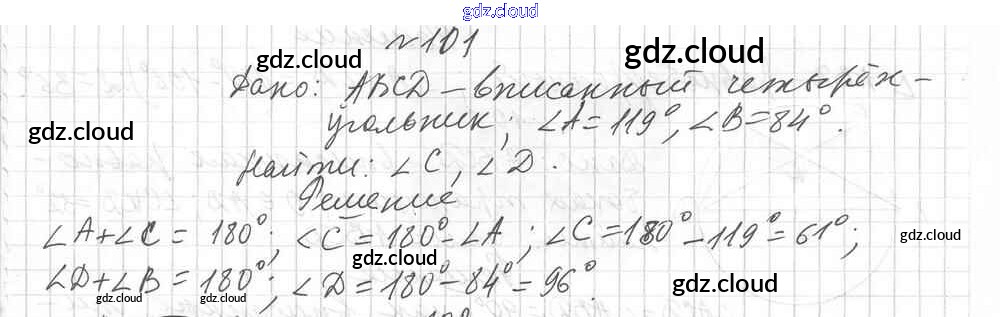 gdz.cloud
№101
gdz.cloud
gdz.cloud
Дано: ABCD – вписанный четырёх-
gdz.cloud
угольник; ∠A = 119°, ∠B = 84°.
gdz.cloud
Найти: ∠C, ∠D.
Решение
∠A+∠C = 180°; ∠C = 180°-∠A; ∠C = 180°-119° = 61°;
gdz.cloud
gdz.cloud
∠D+∠B = 180°; ∠D = 180°-84° = 96°.
gdz.cloud
gdz.cloud
gdz.cloud